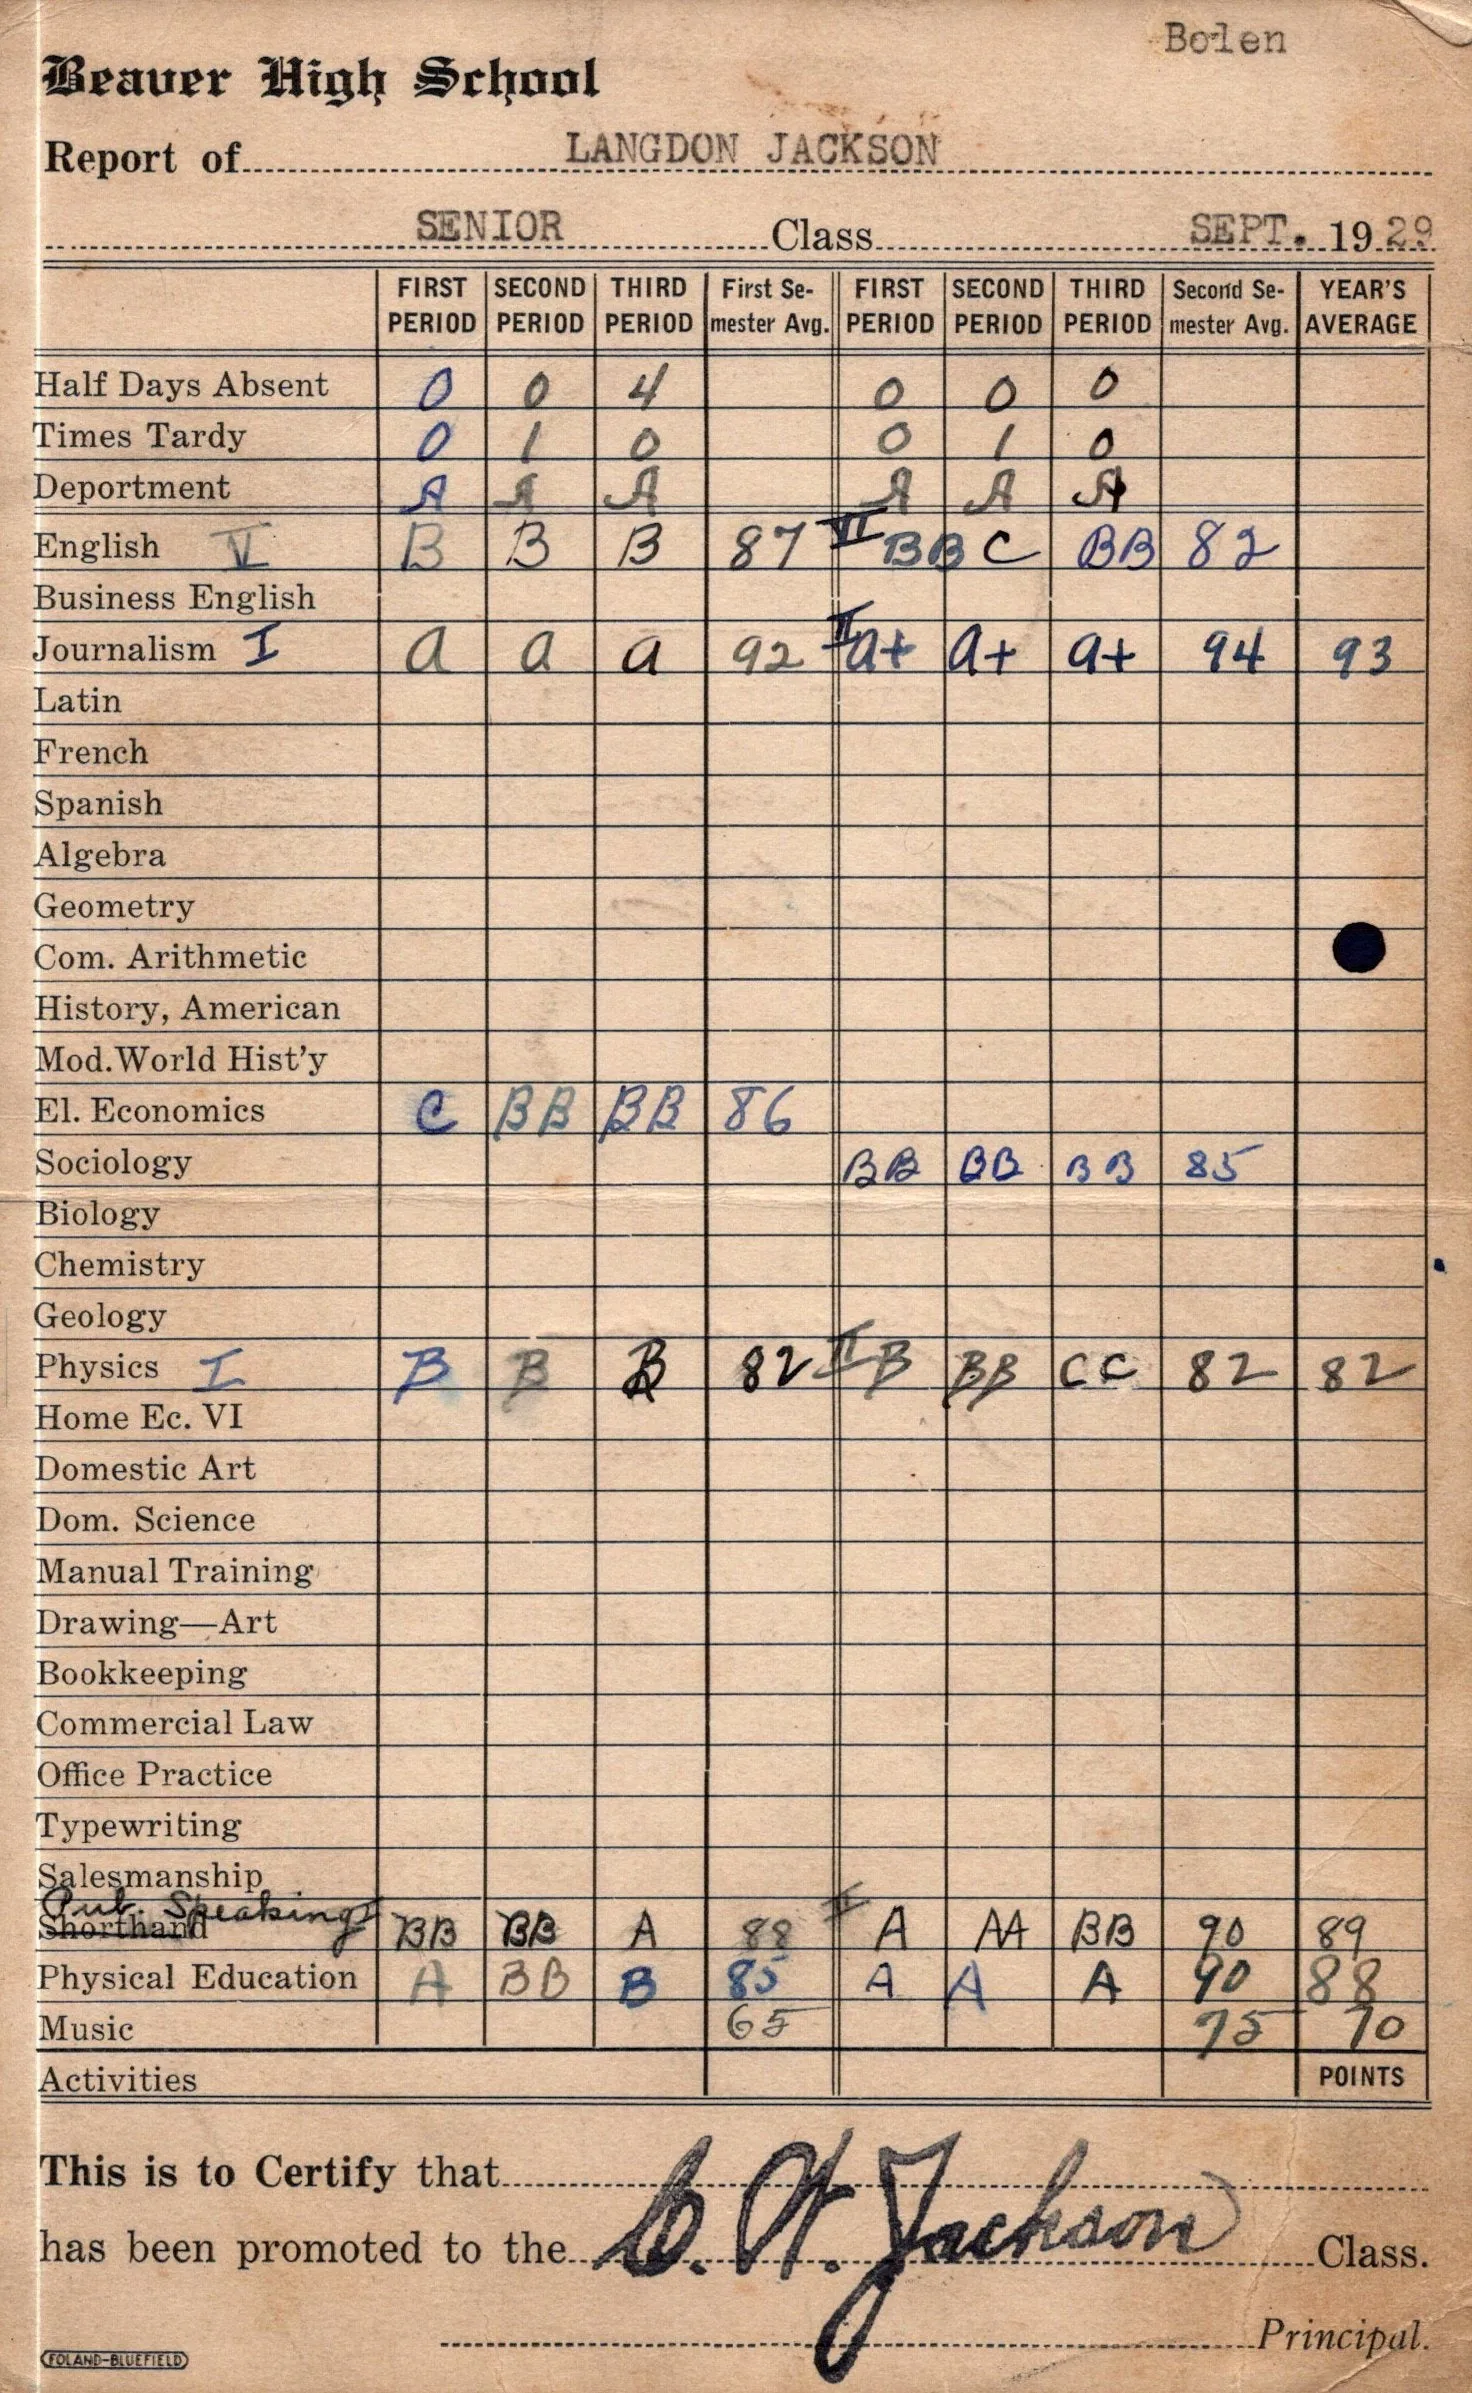 Bolen
Beaver High School
Report of LANGDON JACKSON
SENIOR Class SEPT. 1929
FIRST PERIOD SECOND PERIOD THIRD PERIOD First Semester Avg. FIRST PERIOD SECOND PERIOD THIRD PERIOD Second Semester Avg. YEAR'S AVERAGE
Half Days Absent 0 0 4 0 0 0
Times Tardy 0 1 0 0 1 0
Deportment A A A A A A
English V B B B 87 VI BB C BB 82
Business English
Journalism I a a a 92 II a+ a+ a+ 94 93
Latin
French
Spanish
Algebra
Geometry
Com. Arithmetic
History, American
Mod. World Hist'y
El. Economics C BB BB 86
Sociology BB BB BB 85
Biology
Chemistry
Geology
Physics I B B B 82 II B BB CC 82 82
Home Ec. VI
Domestic Art
Dom. Science
Manual Training
Drawing—Art
Bookkeeping
Commercial Law
Office Practice
Typewriting
Salesmanship
Pub. Speaking
Shorthand BB BB A 88 II A AA BB 90 89
Physical Education A BB B 85 A A A 90 88
Music 65 75 70
Activities POINTS
This is to Certify that
has been promoted to the C. W. Jackson Class.
Principal.
FOLAND-BLUEFIELD